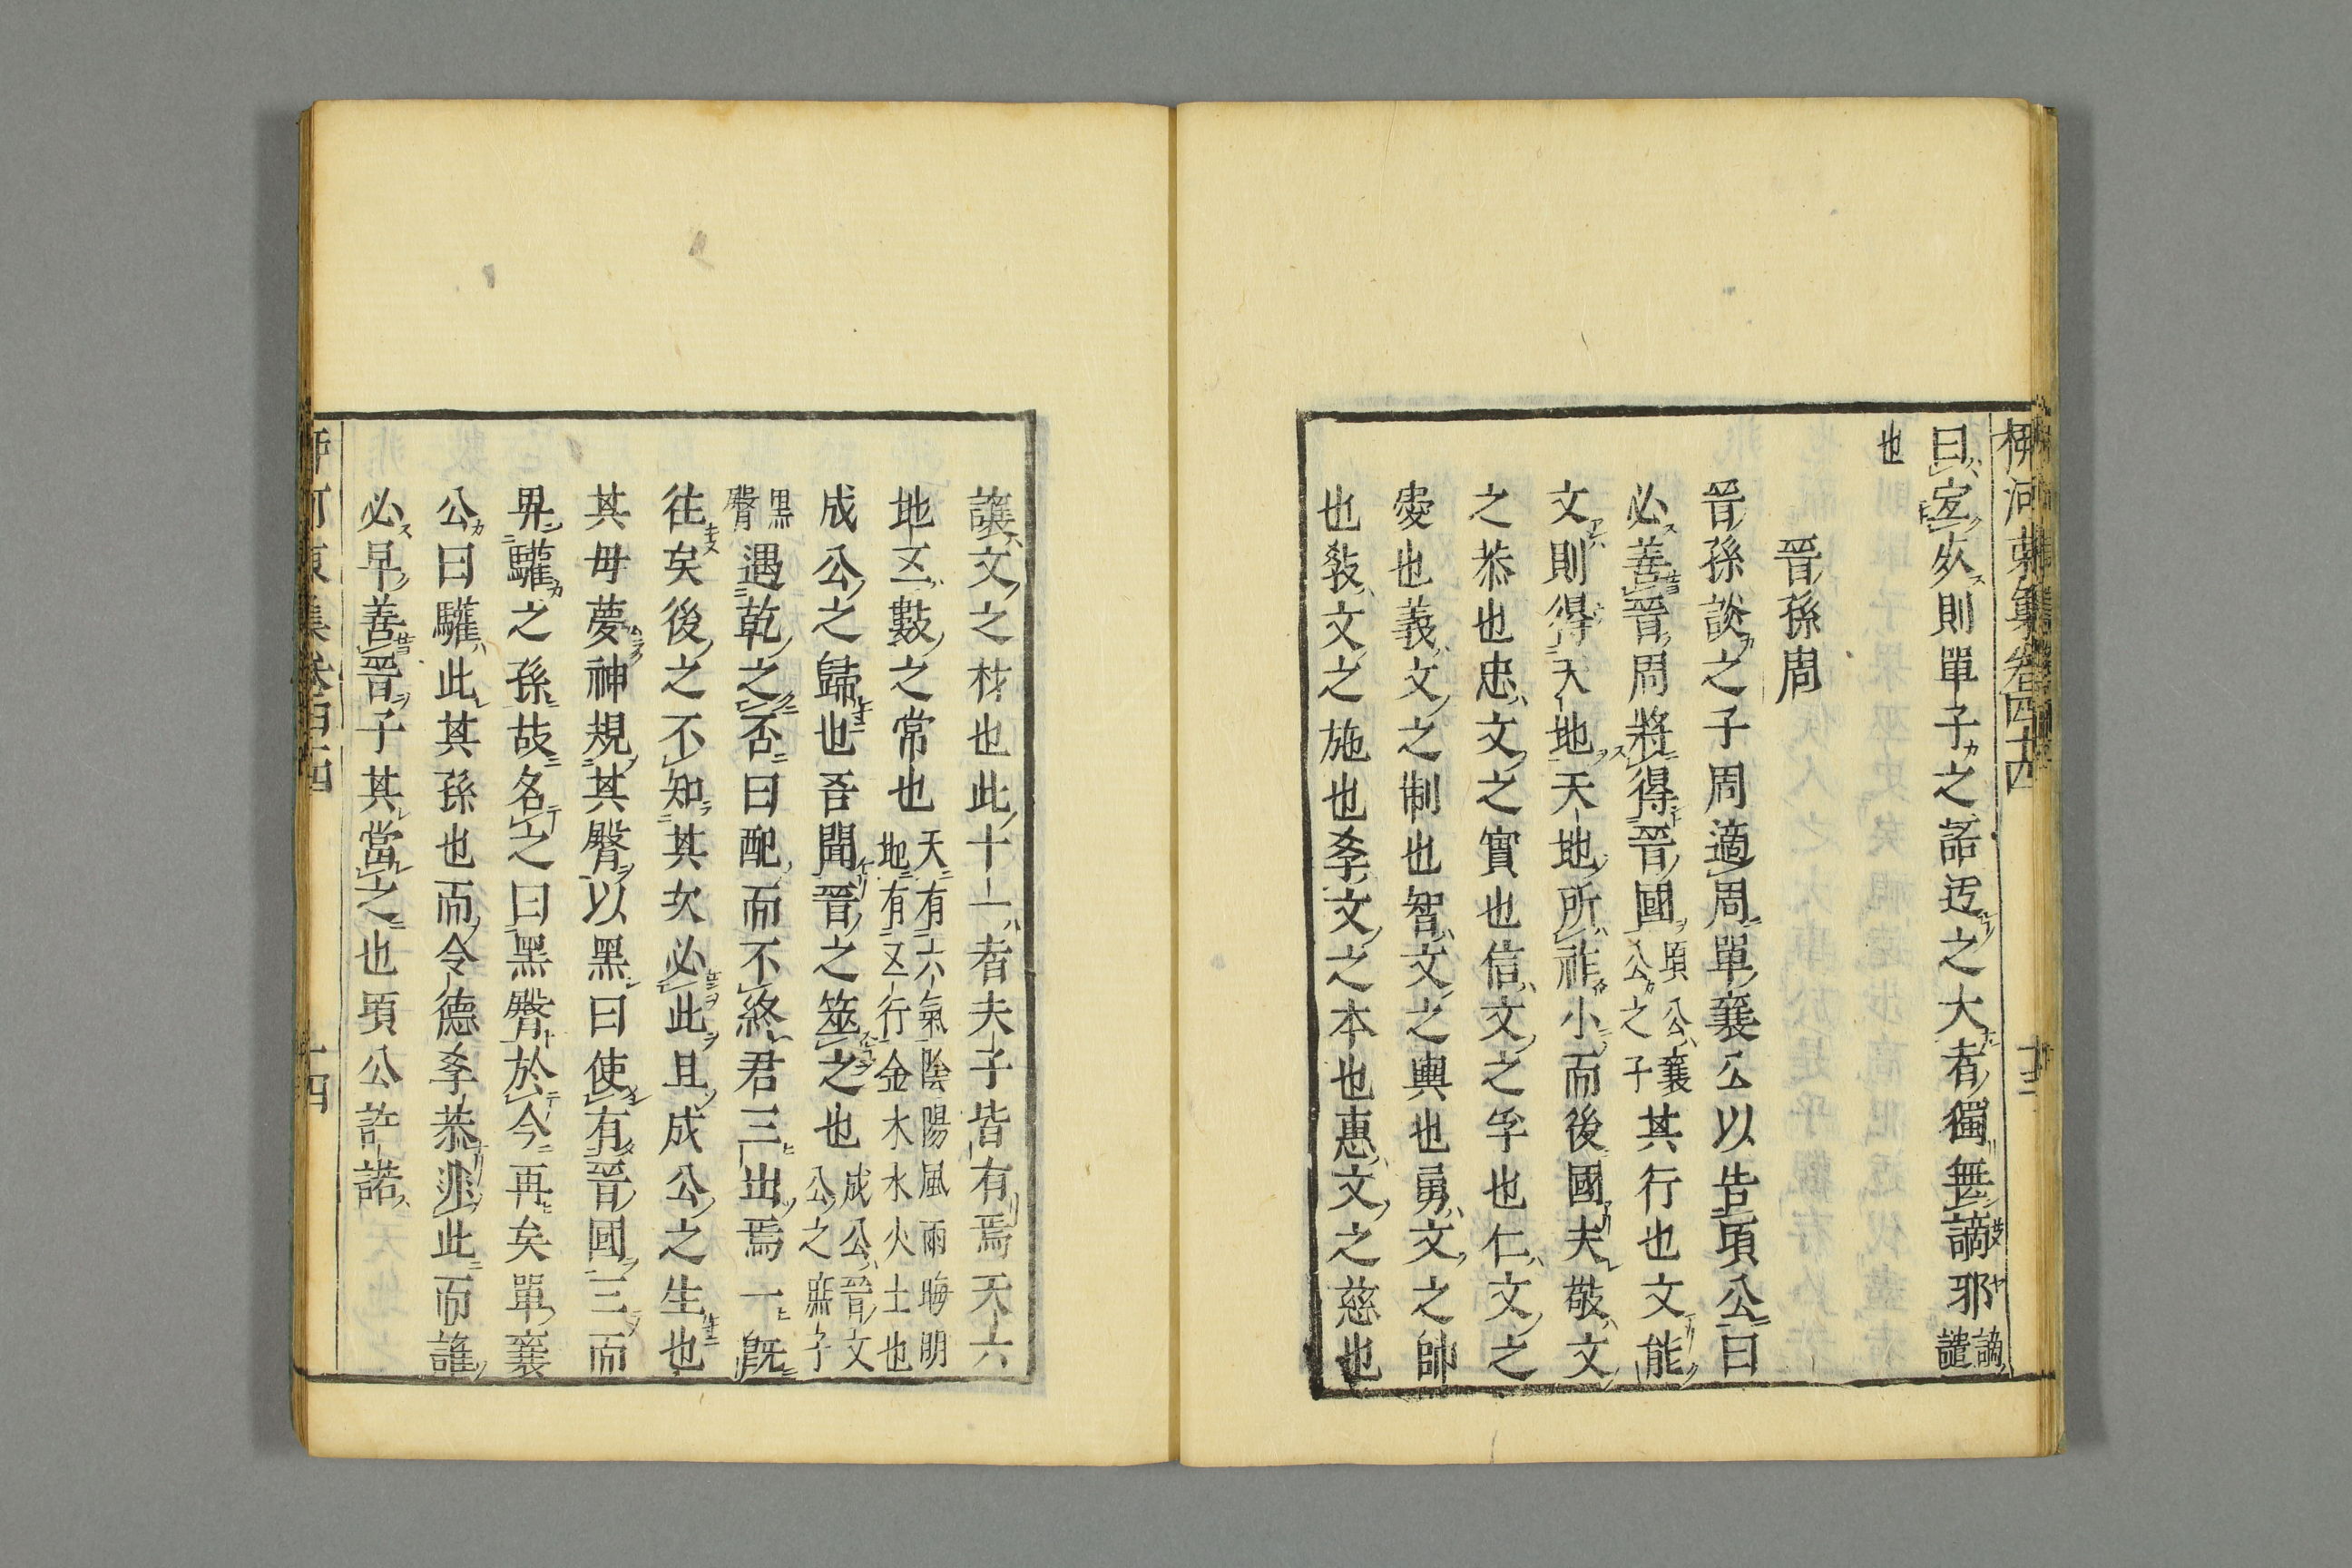 柳河東集卷四十四
十三
曰宜死則單子之語迂之大者獨無謫邪謫譴
也
晉孫周
晉孫談之子周適周單襄公以告頃公曰
必善晉周將得晉國頃公襄公之子其行也文能
文則得天地天地所祚小而後國夫敬文
之恭也忠文之實也信文之孚也仁文之
愛也義文之制也智文之輿也勇文之帥
也教文之施也孝文之本也惠文之慈也
讓文之材也此十一者夫子皆有焉天六
地五數之常也天有六氣陰陽風雨晦明地有五行金木水火土也
成公之歸也吾聞晉之筮之也成公晉文公之庶子
黑臀遇乾之否曰配而不終君三出焉一既
往矣後之不知其次必此且成公之生也
其母夢神規其臀以黑曰使有晉國三而
畀驩之孫故名之曰黑臀於今再矣單襄
公曰驩此其孫也而令德孝恭非此而誰
必早善晉子其當之也頃公許諾
河東集卷四十四
十四